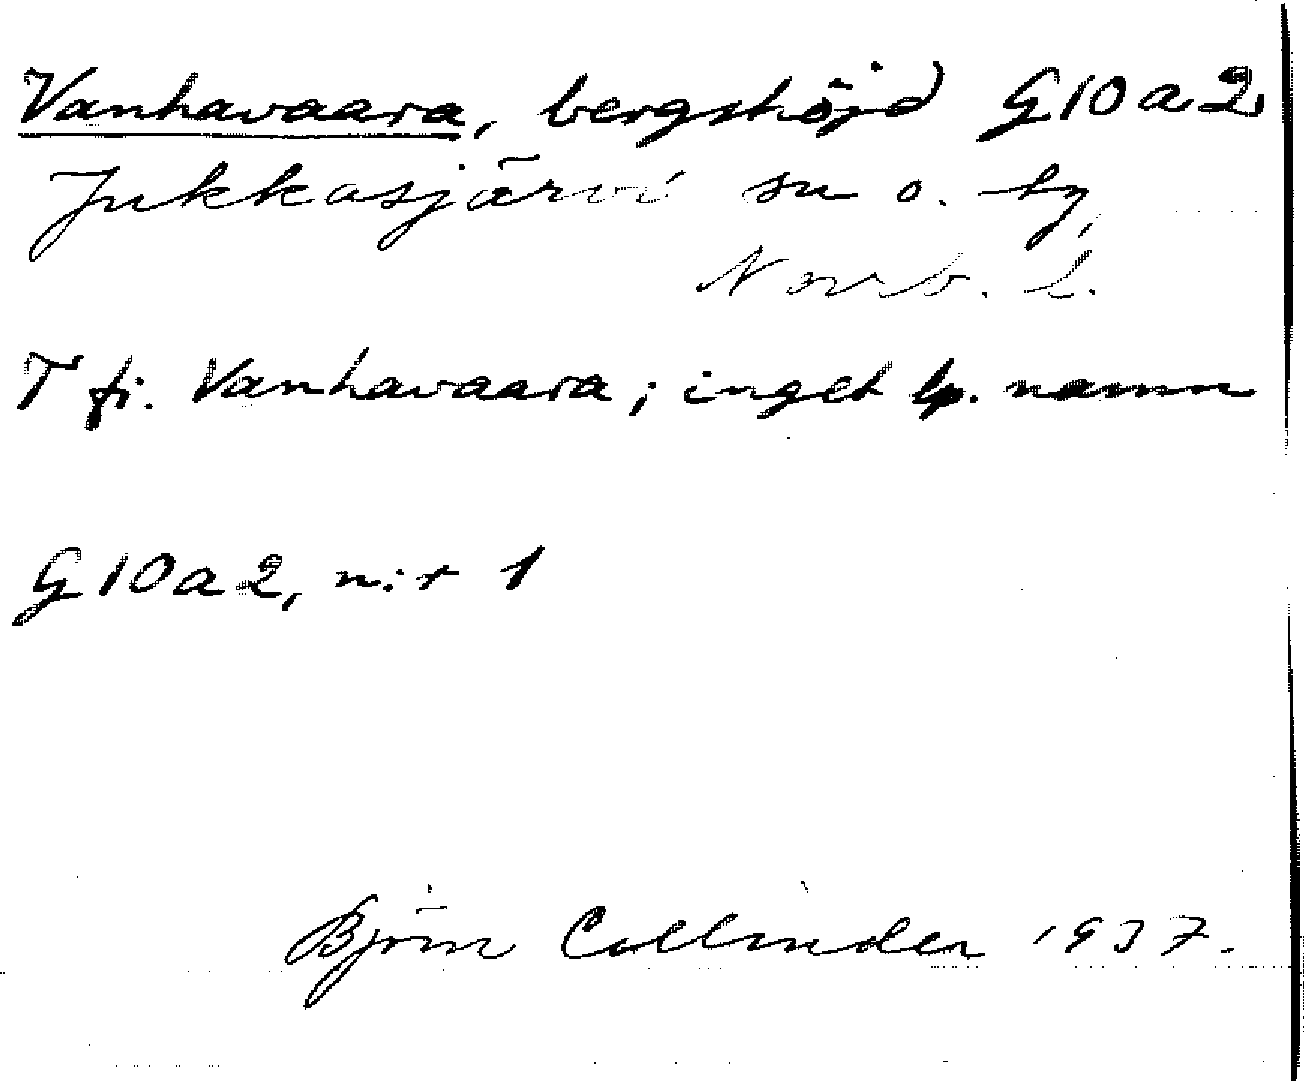 Vanhavaara, bergshöjd G10a2
Jukkasjärvi sn o. by,
Norrb. l.
T fi. Vanhavaara; inget lp. namn
G10a2, n:r 1
Björn Collinder 1937.